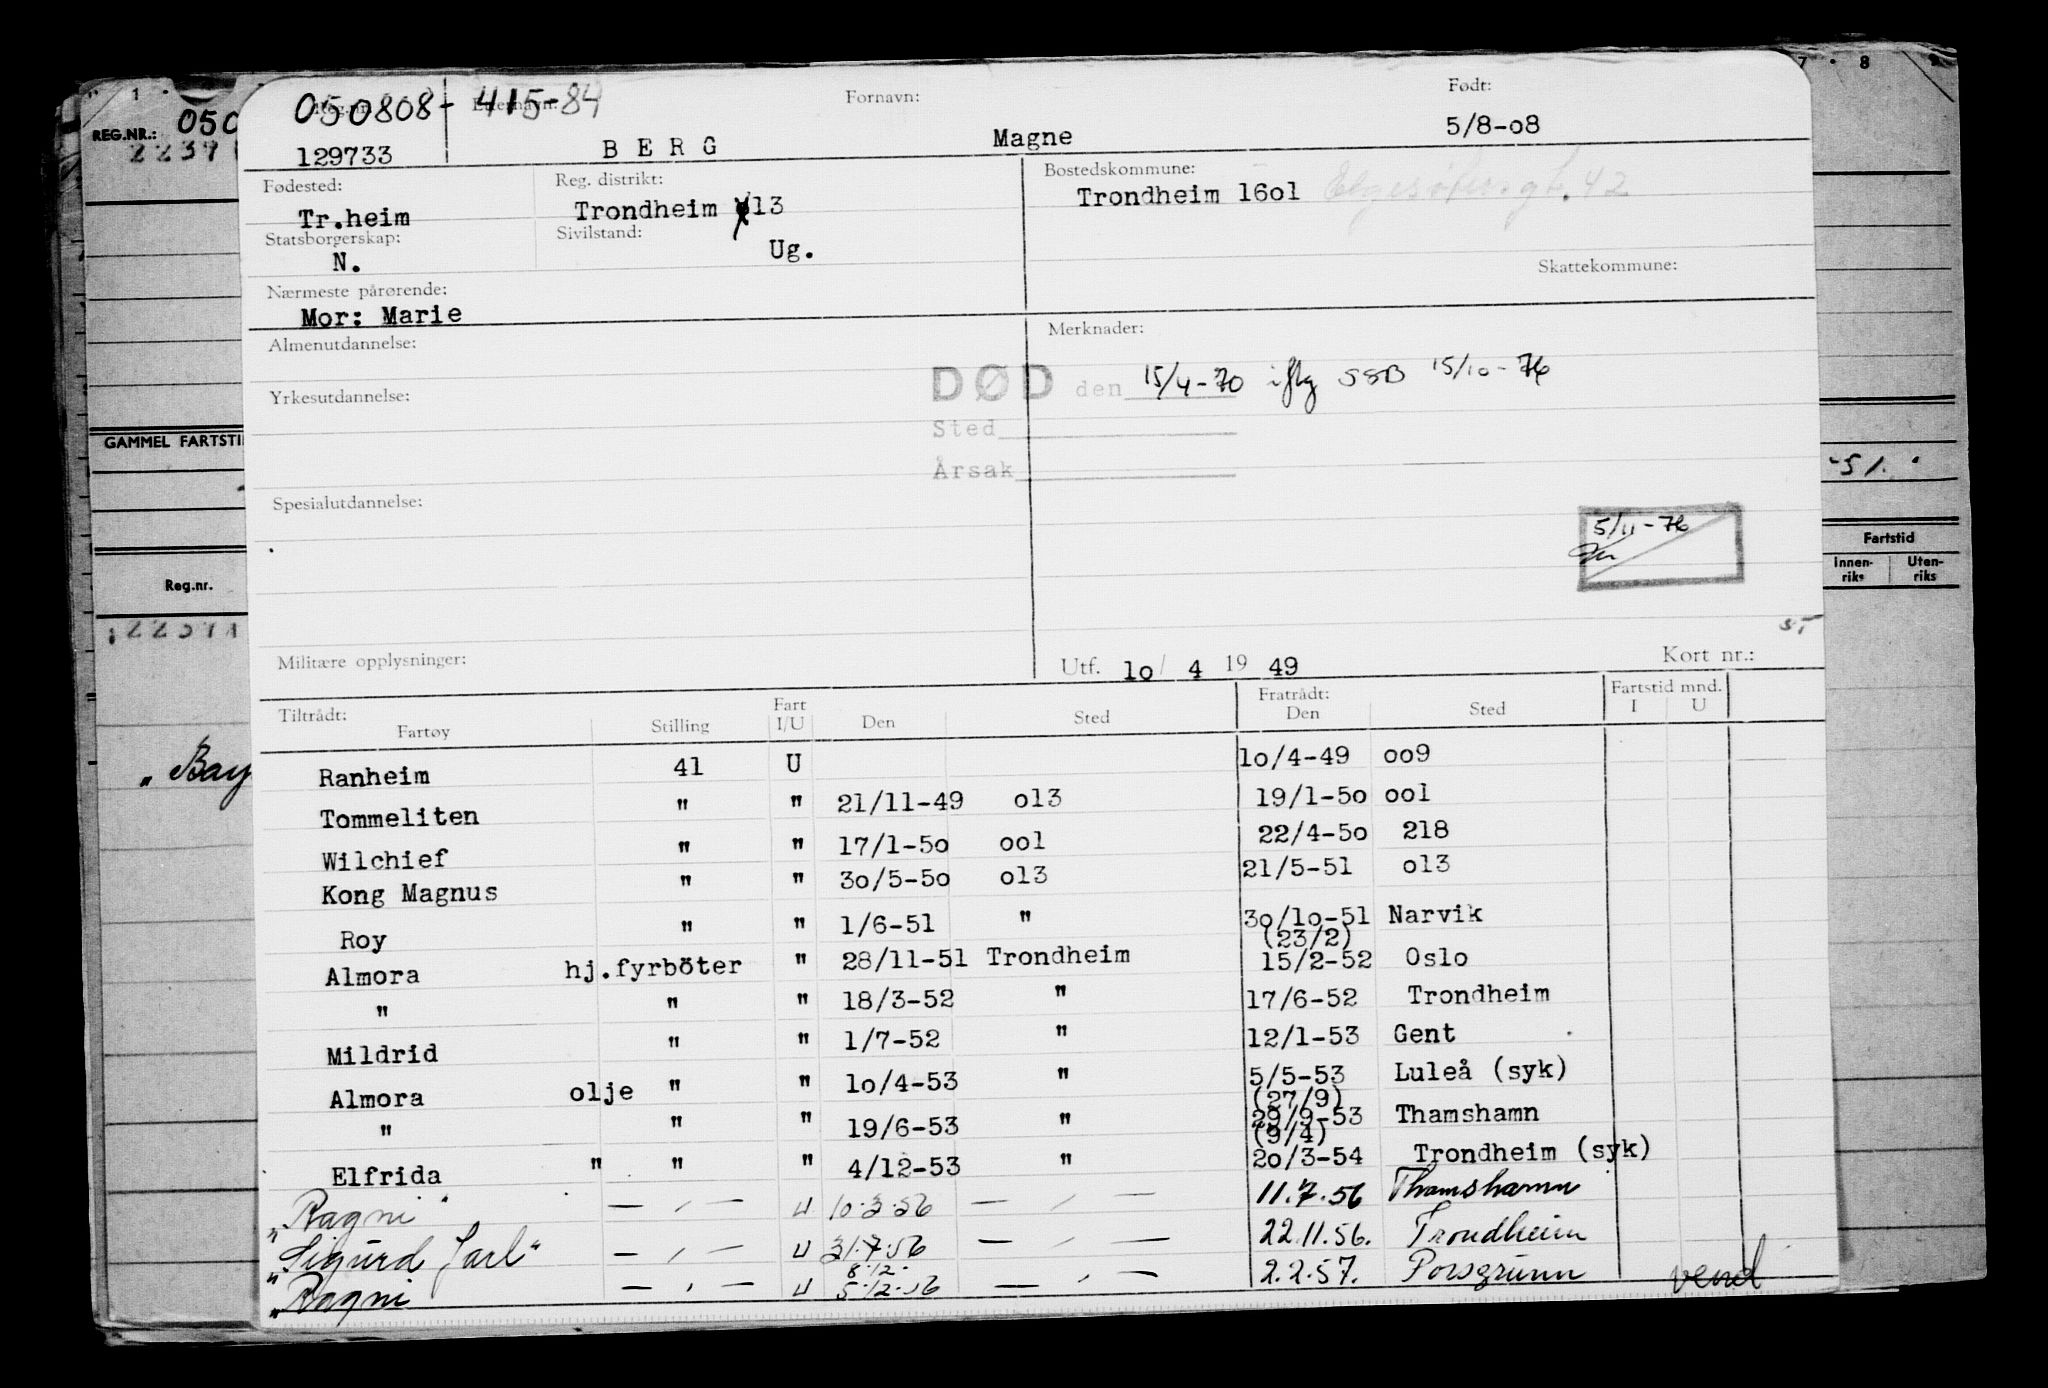 1 7 8
REG.NR.: 050
2239
GAMMEL FARTSTI
-51.
Fartstid
Innen-riks Uten-riks
Reg.nr.
"Bay
050808-415-84 Fornavn: Født:
129733 BERG Magne 5/8-o8
Fødested: Reg. distrikt: Bostedskommune:
Tr.heim Trondheim 13 Trondheim 16o1 42
Statsborgerskap: Sivilstand:
N. Ug.
Skattekommune:
Nærmeste pårørende:
Mor: Marie
Almenutdannelse: Merknader:
DØD den 15/4-70 iflg SSB 15/10-76
Yrkesutdannelse:
Sted
Årsak
Spesialutdannelse:
5/11-76
Militære opplysninger: Utf. lo/ 4 19 49 Kort nr.:
Tiltrådt: Fratrådt: Fartstid mnd.
Fartøy Stilling Fart I/U Den Sted Den Sted I U
Ranheim 41 U lo/4-49 oo9
Tommeliten " " 21/11-49 o13 19/1-5o oo1
Wilchief " " 17/1-5o oo1 22/4-5o 218
Kong Magnus " " 3o/5-5o o13 21/5-51 o13
Roy " " 1/6-51 " 3o/lo-51 Narvik
(23/2)
Almora hj.fyrböter " 28/11-51 Trondheim 15/2-52 Oslo
" " " 18/3-52 " 17/6-52 Trondheim
Mildrid " " 1/7-52 " 12/1-53 Gent
Almora olje " " lo/4-53 " 5/5-53 Luleå (syk)
(27/9)
" " " 19/6-53 " 29/9-53 Thamshamn
(9/4)
Elfrida " " " 4/12-53 " 2o/3-54 Trondheim (syk)
"Ragni" — " — U 10.3.56 — " — 11.7.56 Thamshamn
"Sigurd Jarl" — " — U 31.7.56 — " — 22.11.56. Trondheim
8.12.
"Ragni — " — U 5.12.56 — " — 2.2.57. Porsgrunn vend